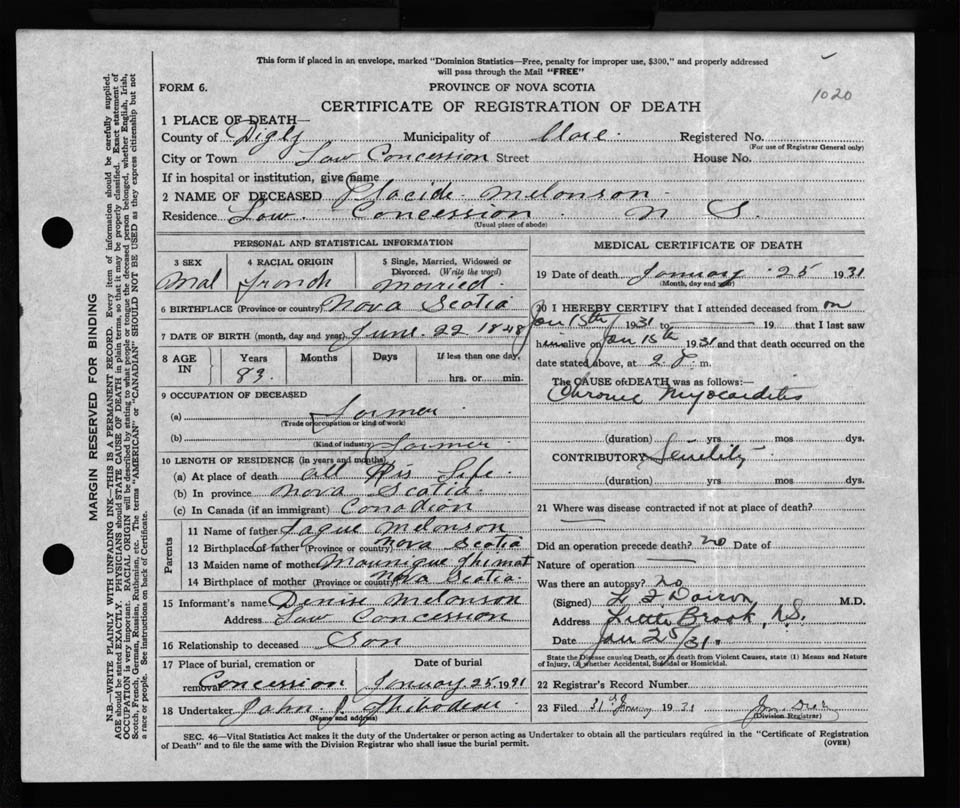 This form if placed in an envelope, marked "Dominion Statistics—Free, penalty for improper use, $300," and properly addressed
will pass through the Mail "FREE"
1020
FORM 6.
PROVINCE OF NOVA SCOTIA
CERTIFICATE OF REGISTRATION OF DEATH
1 PLACE OF DEATH—
County of Digby Municipality of Clare. Registered No.
(For use of Registrar General only)
City or Town Law Concession Street House No.
If in hospital or institution, give name
2 NAME OF DECEASED Placide Melonson
Residence Law. Concession N S.
(Usual place of abode)
PERSONAL AND STATISTICAL INFORMATION
3 SEX 4 RACIAL ORIGIN 5 Single, Married, Widowed or
Divorced. (Write the word)
Mal French Married.
6 BIRTHPLACE (Province or country) Nova Scotia
7 DATE OF BIRTH (month, day and year) June. 22 1848
8 AGE IN Years Months Days If less than one day,
83. hrs. or min.
9 OCCUPATION OF DECEASED
(a) Farmer
(Trade or occupation or kind of work)
(b) Farmer
(Kind of industry)
10 LENGTH OF RESIDENCE (in years and months)
(a) At place of death all His Life.
(b) In province Nova Scotia.
(c) In Canada (if an immigrant) Canadian
Parents
11 Name of father Jaque Melonson
12 Birthplace of father (Province or country) Nova Scotia
13 Maiden name of mother
14 Birthplace of mother (Province or country) Nova Scotia.
15 Informant's name Denise Melonson
Address Law Concession
16 Relationship to deceased Son
17 Place of burial, cremation or removal Date of burial
Concession January 25, 1931
18 Undertaker John J. Thibodeau
(Name and address)
MEDICAL CERTIFICATE OF DEATH
19 Date of death January 25 1931
(Month, day and year)
20 I HEREBY CERTIFY that I attended deceased from on
Jan 15th 1931 to 19 that I last saw
him alive on Jan 15th 1931 and that death occurred on the
date stated above, at 2. P. m.
The CAUSE of DEATH was as follows:—
Chronic Myocarditis
(duration) yrs mos dys.
CONTRIBUTORY Senility
(duration) yrs. mos. dys.
21 Where was disease contracted if not at place of death?
Did an operation precede death? no Date of
Nature of operation
Was there an autopsy? no
(Signed) M.D.
Address Little Brook, N.S.
Date Jan 25/31.
State the Disease causing Death, or in death from Violent Causes, state (1) Means and Nature
of Injury, (2) whether Accidental, Suicidal or Homicidal.
22 Registrar's Record Number
23 Filed 31st January 1931
(Division Registrar)
SEC. 46—Vital Statistics Act makes it the duty of the Undertaker or person acting as Undertaker to obtain all the particulars required in the "Certificate of Registration
of Death" and to file the same with the Division Registrar who shall issue the burial permit.
(OVER)
MARGIN RESERVED FOR BINDING
N.B.—WRITE PLAINLY WITH UNFADING INK—THIS IS A PERMANENT RECORD. Every item of information should be carefully supplied.
AGE should be stated EXACTLY. PHYSICIANS should STATE CAUSE OF DEATH in plain terms, so that it may be properly classified. Exact statement of
OCCUPATION is very important. RACIAL ORIGIN will be described by stating to what people or tongue the deceased person belonged, whether English, Irish,
Scotch, French, German, Russian, Ruthenian, etc. The terms "AMERICAN" or "CANADIAN" SHOULD NOT BE USED as they express citizenship but not
a race or people. See instructions on back of Certificate.